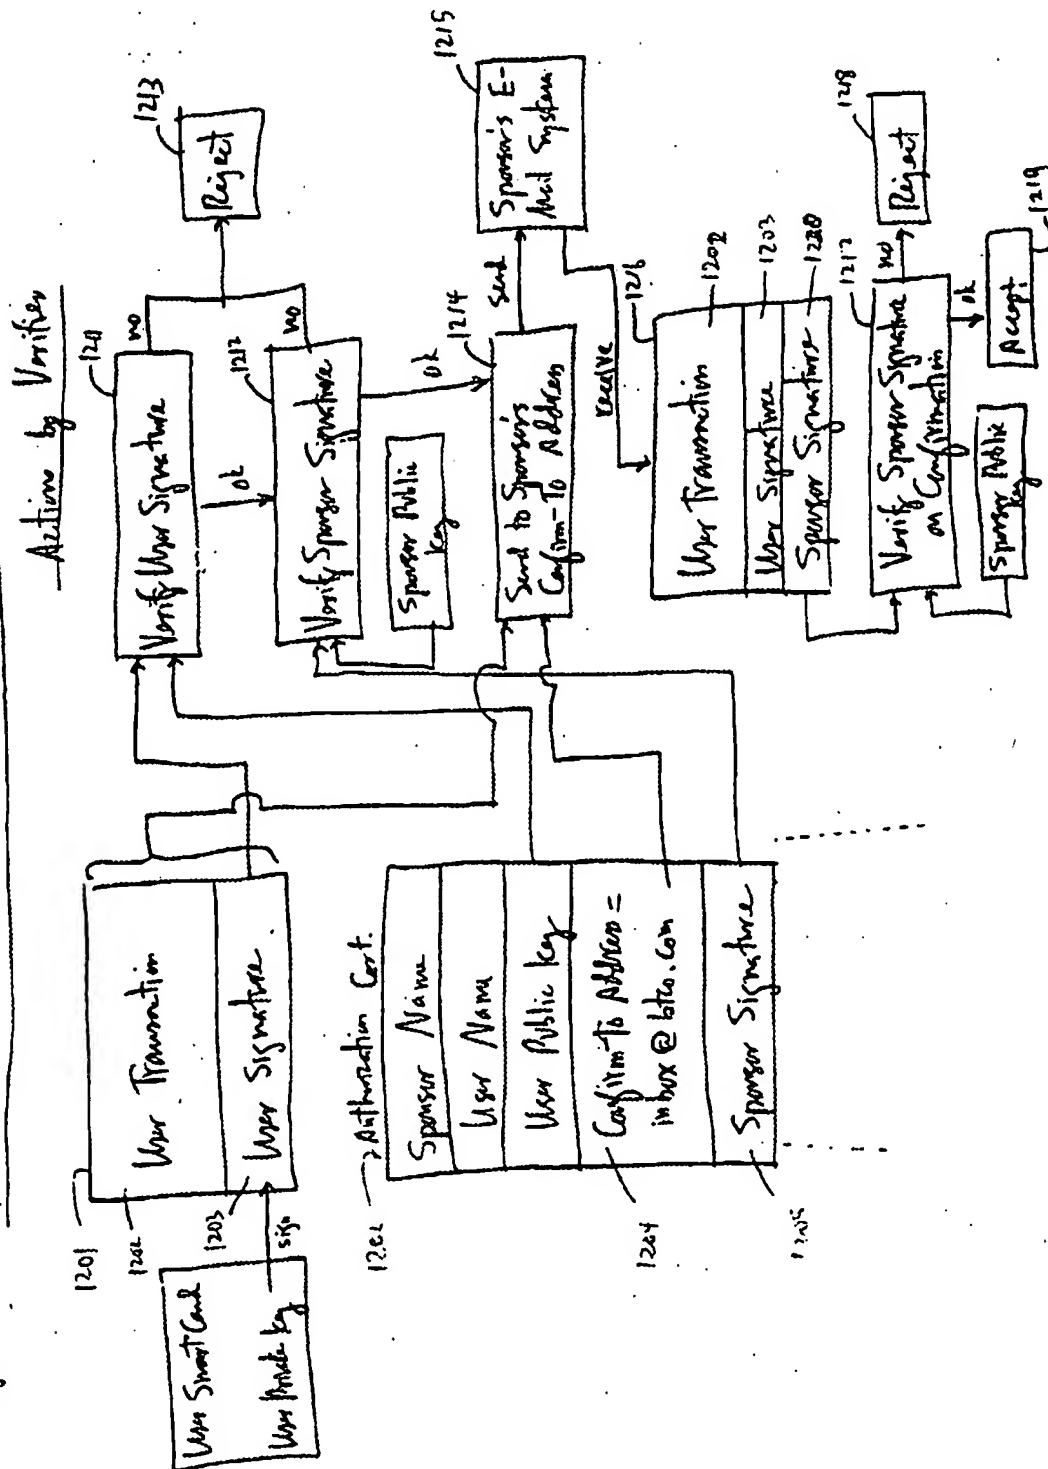 Action by Verifier
User Smart Card
User Private Key
sign
1201
1202
1203
User Transaction
User Signature
Authorization Cert.
Sponsor Name
User Name
User Public Key
Confirm-To Address =
inbox@btco.com
Sponsor Signature
1204
1205
Verify User Signature
no
ok
1212
Verify Sponsor Signature
no
ok
Reject
1213
Sponsor Public
Key
1214
Send to Sponsor's
Confirm-To Address
send
1215
Sponsor's E-
Mail System
receive
1216
User Transaction
1202
User Signature
1203
Sponsor Signature
1217
Verify Sponsor Signature
on Confirmation
no
ok
Reject
1218
Sponsor Public
Key
Accept
1219